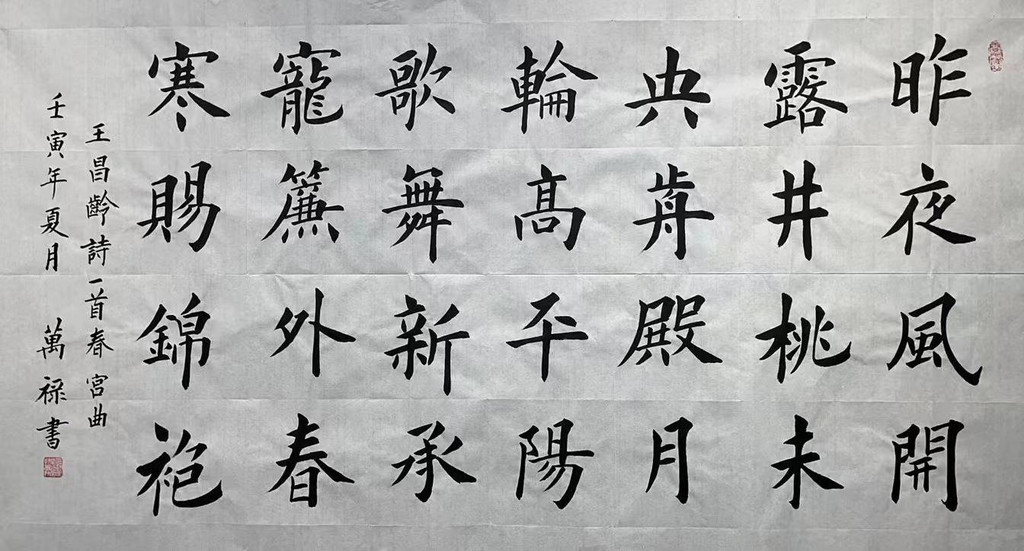 昨夜風開
露井桃未
央歬殿月
輪高平陽
歌舞新承
寵簾外春
寒賜錦袍
王昌齡詩一首春宮曲
壬寅年夏月 萬祿書